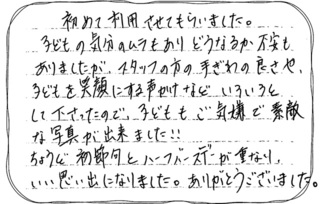 初めて利用させてもらいました。
子どもの気分のムラもあり どうなるか不安も
ありましたが、スタッフの方の手ぎわの良さや、
子どもを笑顔にする声かけなど いろいろと
して下さったので、子どもも ご気嫌で 素敵
な写真が出来ました!!
ちょうど 初節句とハーフバースデーが重なり、
いい思い出になりました。ありがとうございました。